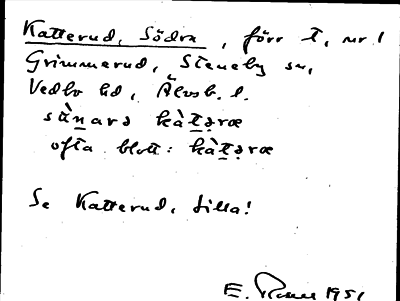 Katterud, Södra, förr t. nr 1
Grimmerud, Steneby sn,
Vedbo hd, Älvsb. l.
sùnarə kàtəræ
ofta blott: kàtəræ
Se Katterud, Lilla!
E. 1951